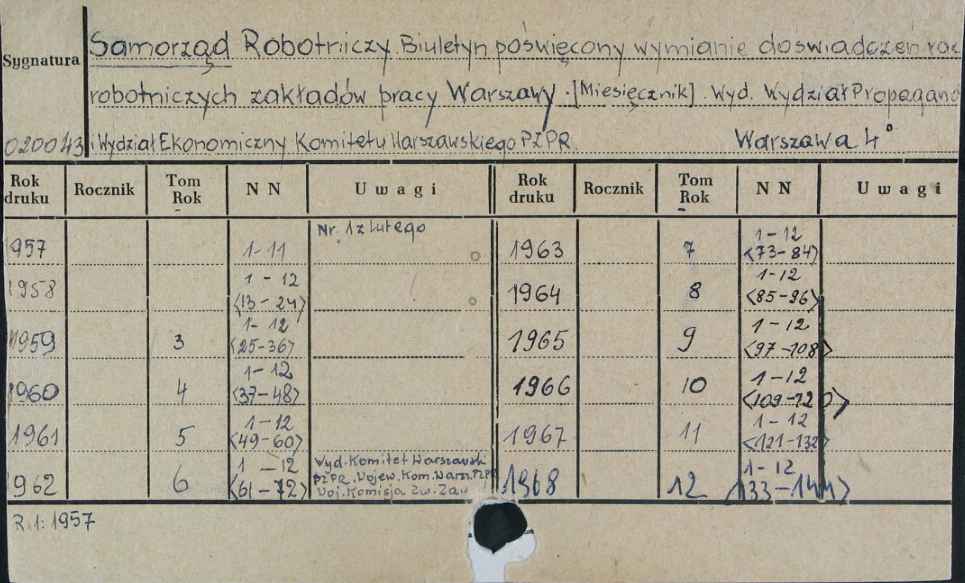 Samorząd Robotniczy. Biuletyn poświęcony wymianie doświadczeń rad
Sygnatura
robotniczych zakładów pracy Warszawy. [Miesięcznik]. Wyd. Wydział Propagand
020043 i Wydział Ekonomiczny Komitetu Warszawskiego PZPR. Warszawa 4°
Rok druku Rocznik Tom Rok N N Uwagi Rok druku Rocznik Tom Rok N N Uwagi
1957 1-11 Nr. 1 z lutego 1963 7 1-12 <73-84>
1958 1-12 <13-24> 1964 8 1-12 <85-96>
1959 3 1-12 <25-36> 1965 9 1-12 <97-108>
1960 4 1-12 <37-48> 1966 10 1-12 <109-120>
1961 5 1-12 <49-60> 1967 11 1-12 <121-132>
1962 6 1-12 <61-72> Wyd. Komitet Warszawski PZPR. Wojew. Kom. Warsz. PZPR Woj. Komisja Zw. Zaw 1968 12 1-12 <133-144>
R.1: 1957